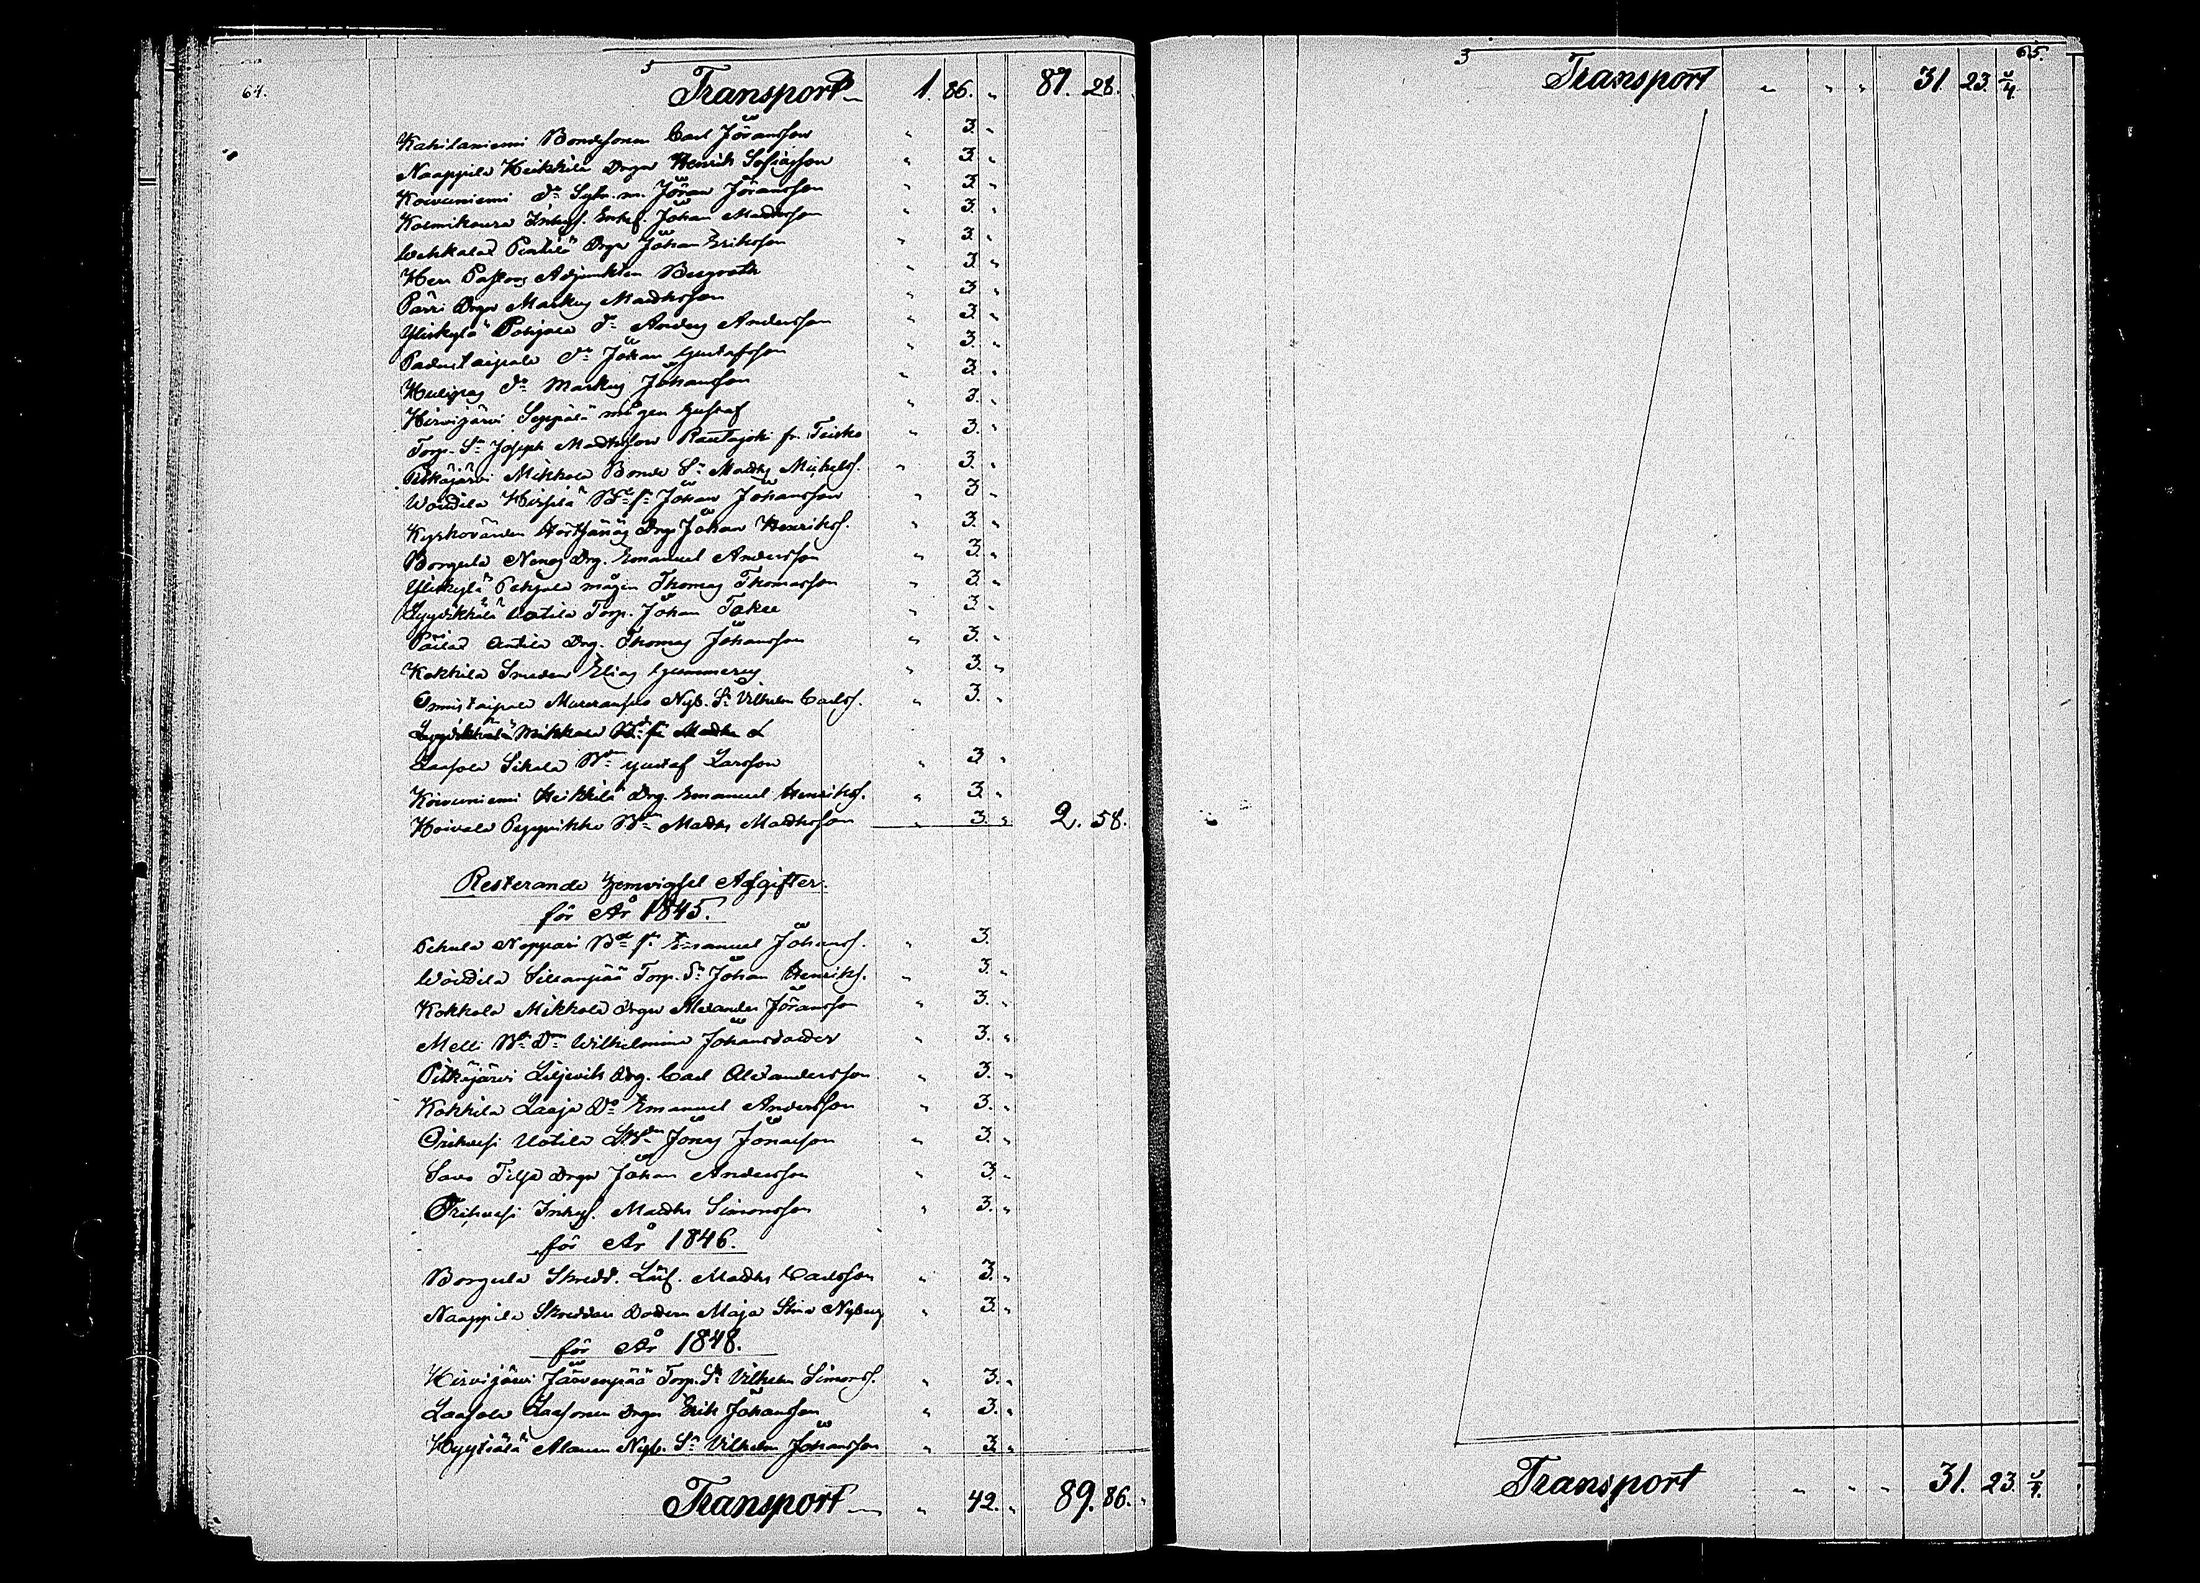 64.
Transport 1. 86. 87. 28.
Kahilaniemi Bondesonen Carl Jöransson 3.
Naappila Heikkilä Drgn Henrik Sofiasson 3.
Koivuniemi do Jöran Jöransson 3.
Inhys. Enkl. Johan Mathsson 3.
Wehkalax Penttilä Drgn Johan Eriksson 3.
Herr Pastors Adjunkten Bergroth 3.
Pärri Drgn Markus Mathsson 3.
Yliskylä Pohjola do Anders Andersson 3.
Padustaipale do Johan Gustafsson 3.
do Markus Johansson 3.
Hirvijärvi Seppälä mågen Gustaf 3.
Torp. Sn Joseph Mathsson Rautajoki fr. Teisko 3.
Pitkäjärvi Mikkola Bonde Sn Maths Michelss. 3.
Woitila Hirsilä Bde sn Johan Johansson 3.
Kyrkovärden Drg Johan Henrikss. 3.
Borgula Nenos Drg. Emanuel Andersson 3.
Yliskylä Pohjola mågen Thomas Thomasson 3.
Lyydikkälä Uotila Torp. Johan 3.
Päilax Antila Drg. Thomas Johansson 3.
Kokkila Smeden Elias Gummerus 3.
Onnistaipale Nyb. Sn Vilhelm Carlss. 3.
Lyydikkälä Mikkola Bd sn Maths
Laasola Sikala Bdn Gustaf Larsson 3.
Koivuniemi Heikkilä Drg. Emanuel Henrikss. 3.
Hoivala Pynnikko Bdn Maths Mathsson 3. 2. 58.
Resterande Hemvigsel Afgifter.
för År 1845.
Pehula Noppari Bde sn Emanuel Johanss. 3.
Woitila Sillanpää Torp. Sn Johan Henrikss. 3.
Kokkola Mikkola Drgn Alexander Jöransson 3.
Melli Bde Dn Wilhelmina Johansdotter 3.
Pitkäjärvi Liljevik Drg. Carl Alexandersson 3.
Kokkila Laaja Do Emanuel Andersson 3.
Orihvesi Uotila Jonas Jonasson 3.
Savo Tilja Drgn Johan Andersson 3.
Orihvesi Inhys. Maths Simonsson 3.
för År 1846.
Borgula Skredd. Lärl. Maths Carlsson 3.
Naappila Skreddare Dottern Maja Stina Nyberg 3.
för År 1848.
Hirvijärvi Järvenpää Torp. Sn Vilhelm Simonss. 3.
Laasola Laasonen Drgn Erik Johansson 3.
Hyytiälä Alanen Nyb. Sn Vilhelm Johansson 3.
Transport 42. 89. 86.
65.
Transport 31. 23. 3/4
Transport 31. 23. 3/4.